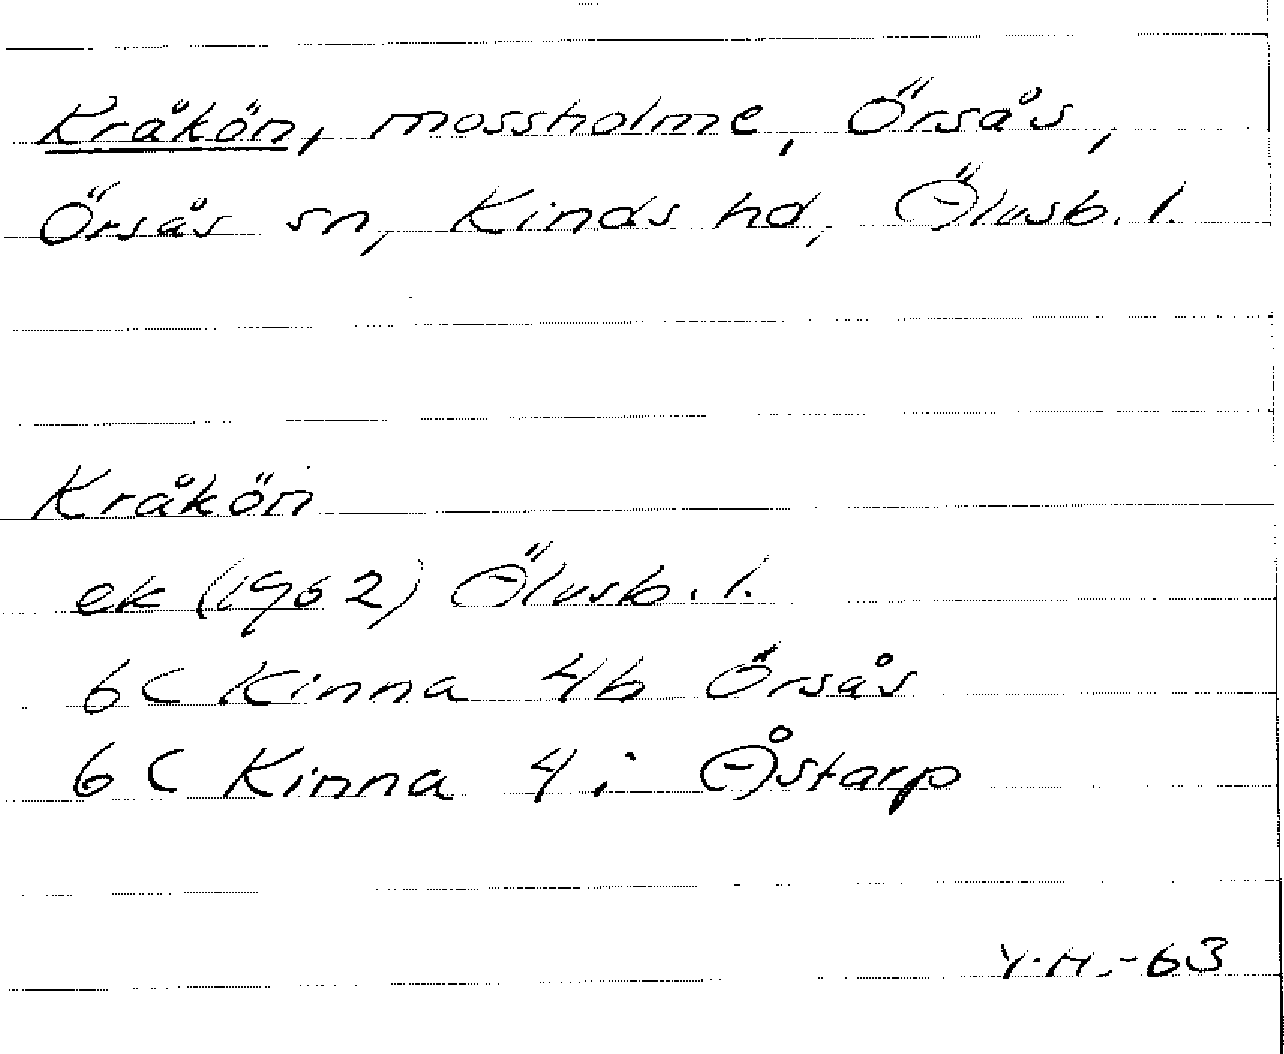 Kråkön, mossholme, Örsås,
Örsås sn, Kinds hd, Älvsb. l.
Kråkön
ek (1962) Älvsb. l.
6C Kinna 4b Örsås
6C Kinna 4i Åstarp
Y.H.-63